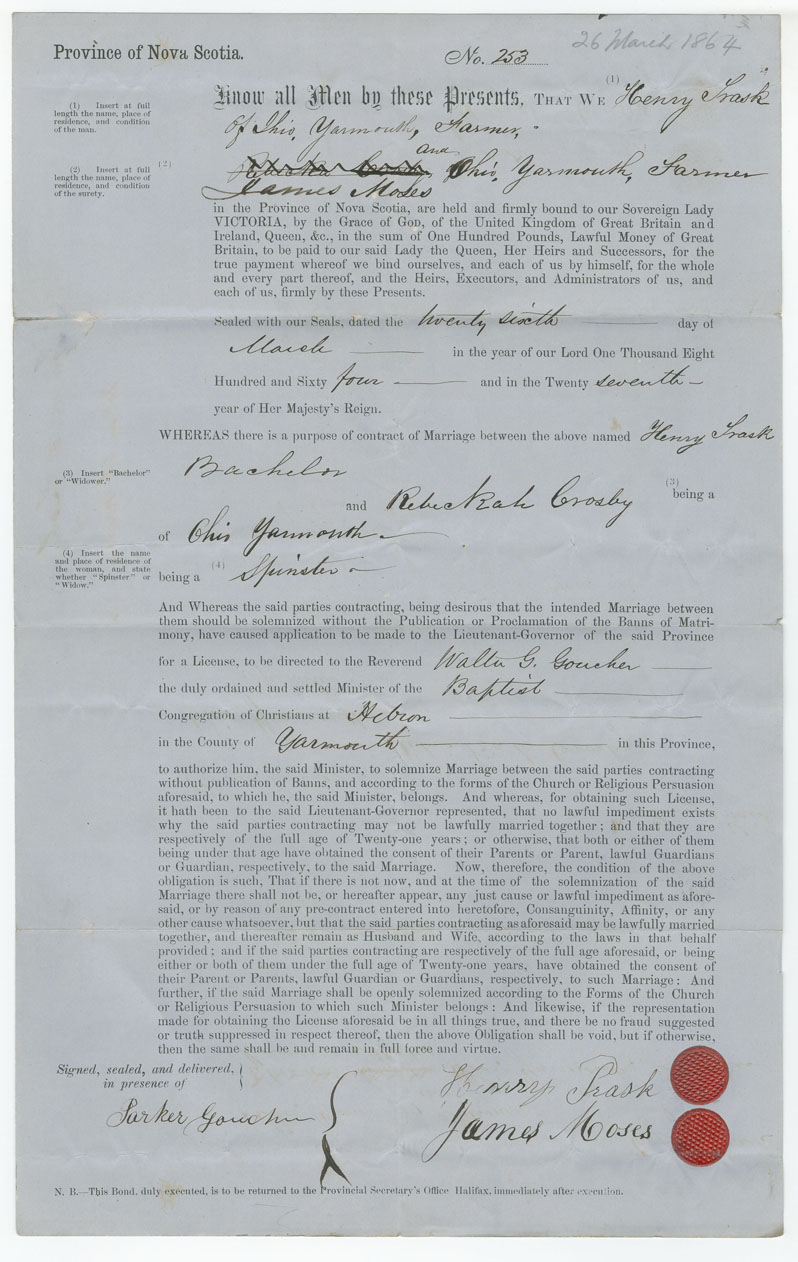 Province of Nova Scotia.
No. 253
26 March 1864
(1) Insert at full
length the name, place of
residence, and condition
of the man.
Know all Men by these Presents, THAT WE (1) Henry Trask
of Ohio, Yarmouth, Farmer,
and
(2) Insert at full
length the name, place of
residence, and condition
of the surety.
(2) Ohio, Yarmouth, Farmer
James Moses
in the Province of Nova Scotia, are held and firmly bound to our Sovereign Lady
VICTORIA, by the Grace of GOD, of the United Kingdom of Great Britain and
Ireland, Queen, &c., in the sum of One Hundred Pounds, Lawful Money of Great
Britain, to be paid to our said Lady the Queen, Her Heirs and Successors, for the
true payment whereof we bind ourselves, and each of us by himself, for the whole
and every part thereof, and the Heirs, Executors, and Administrators of us, and
each of us, firmly by these Presents.
Sealed with our Seals, dated the twenty sixth day of
March in the year of our Lord One Thousand Eight
Hundred and Sixty four and in the Twenty seventh
year of Her Majesty's Reign.
WHEREAS there is a purpose of contract of Marriage between the above named Henry Trask
(3) Insert "Bachelor"
or "Widower."
Bachelor
(3) being a
and Rebeckah Crosby
of Ohio Yarmouth
(4) Insert the name
and place of residence of
the woman, and state
whether "Spinster" or
"Widow."
being a (4) Spinster
And Whereas the said parties contracting, being desirous that the intended Marriage between
them should be solemnized without the Publication or Proclamation of the Banns of Matri-
mony, have caused application to be made to the Lieutenant-Governor of the said Province
for a License, to be directed to the Reverend Walter G. Goucher
the duly ordained and settled Minister of the Baptist
Congregation of Christians at Hebron
in the County of Yarmouth in this Province,
to authorize him, the said Minister, to solemnize Marriage between the said parties contracting
without publication of Banns, and according to the forms of the Church or Religious Persuasion
aforesaid, to which he, the said Minister, belongs. And whereas, for obtaining such License,
it hath been to the said Lieutenant-Governor represented, that no lawful impediment exists
why the said parties contracting may not be lawfully married together; and that they are
respectively of the full age of Twenty-one years; or otherwise, that both or either of them
being under that age have obtained the consent of their Parents or Parent, lawful Guardians
or Guardian, respectively, to the said Marriage. Now, therefore, the condition of the above
obligation is such, That if there is not now, and at the time of the solemnization of the said
Marriage there shall not be, or hereafter appear, any just cause or lawful impediment as afore-
said, or by reason of any pre-contract entered into heretofore, Consanguinity, Affinity, or any
other cause whatsoever, but that the said parties contracting as aforesaid may be lawfully married
together, and thereafter remain as Husband and Wife, according to the laws in that behalf
provided; and if the said parties contracting are respectively of the full age aforesaid, or being
either or both of them under the full age of Twenty-one years, have obtained the consent of
their Parent or Parents, lawful Guardian or Guardians, respectively, to such Marriage: And
further, if the said Marriage shall be openly solemnized according to the Forms of the Church
or Religious Persuasion to which such Minister belongs: And likewise, if the representation
made for obtaining the License aforesaid be in all things true, and there be no fraud suggested
or truth suppressed in respect thereof, then the above Obligation shall be void, but if otherwise,
then the same shall be and remain in full force and virtue.
Signed, sealed, and delivered,
in presence of
Parker Goucher
Henry Trask
James Moses
N. B.—This Bond, duly executed, is to be returned to the Provincial Secretary's Office Halifax, immediately after execution.